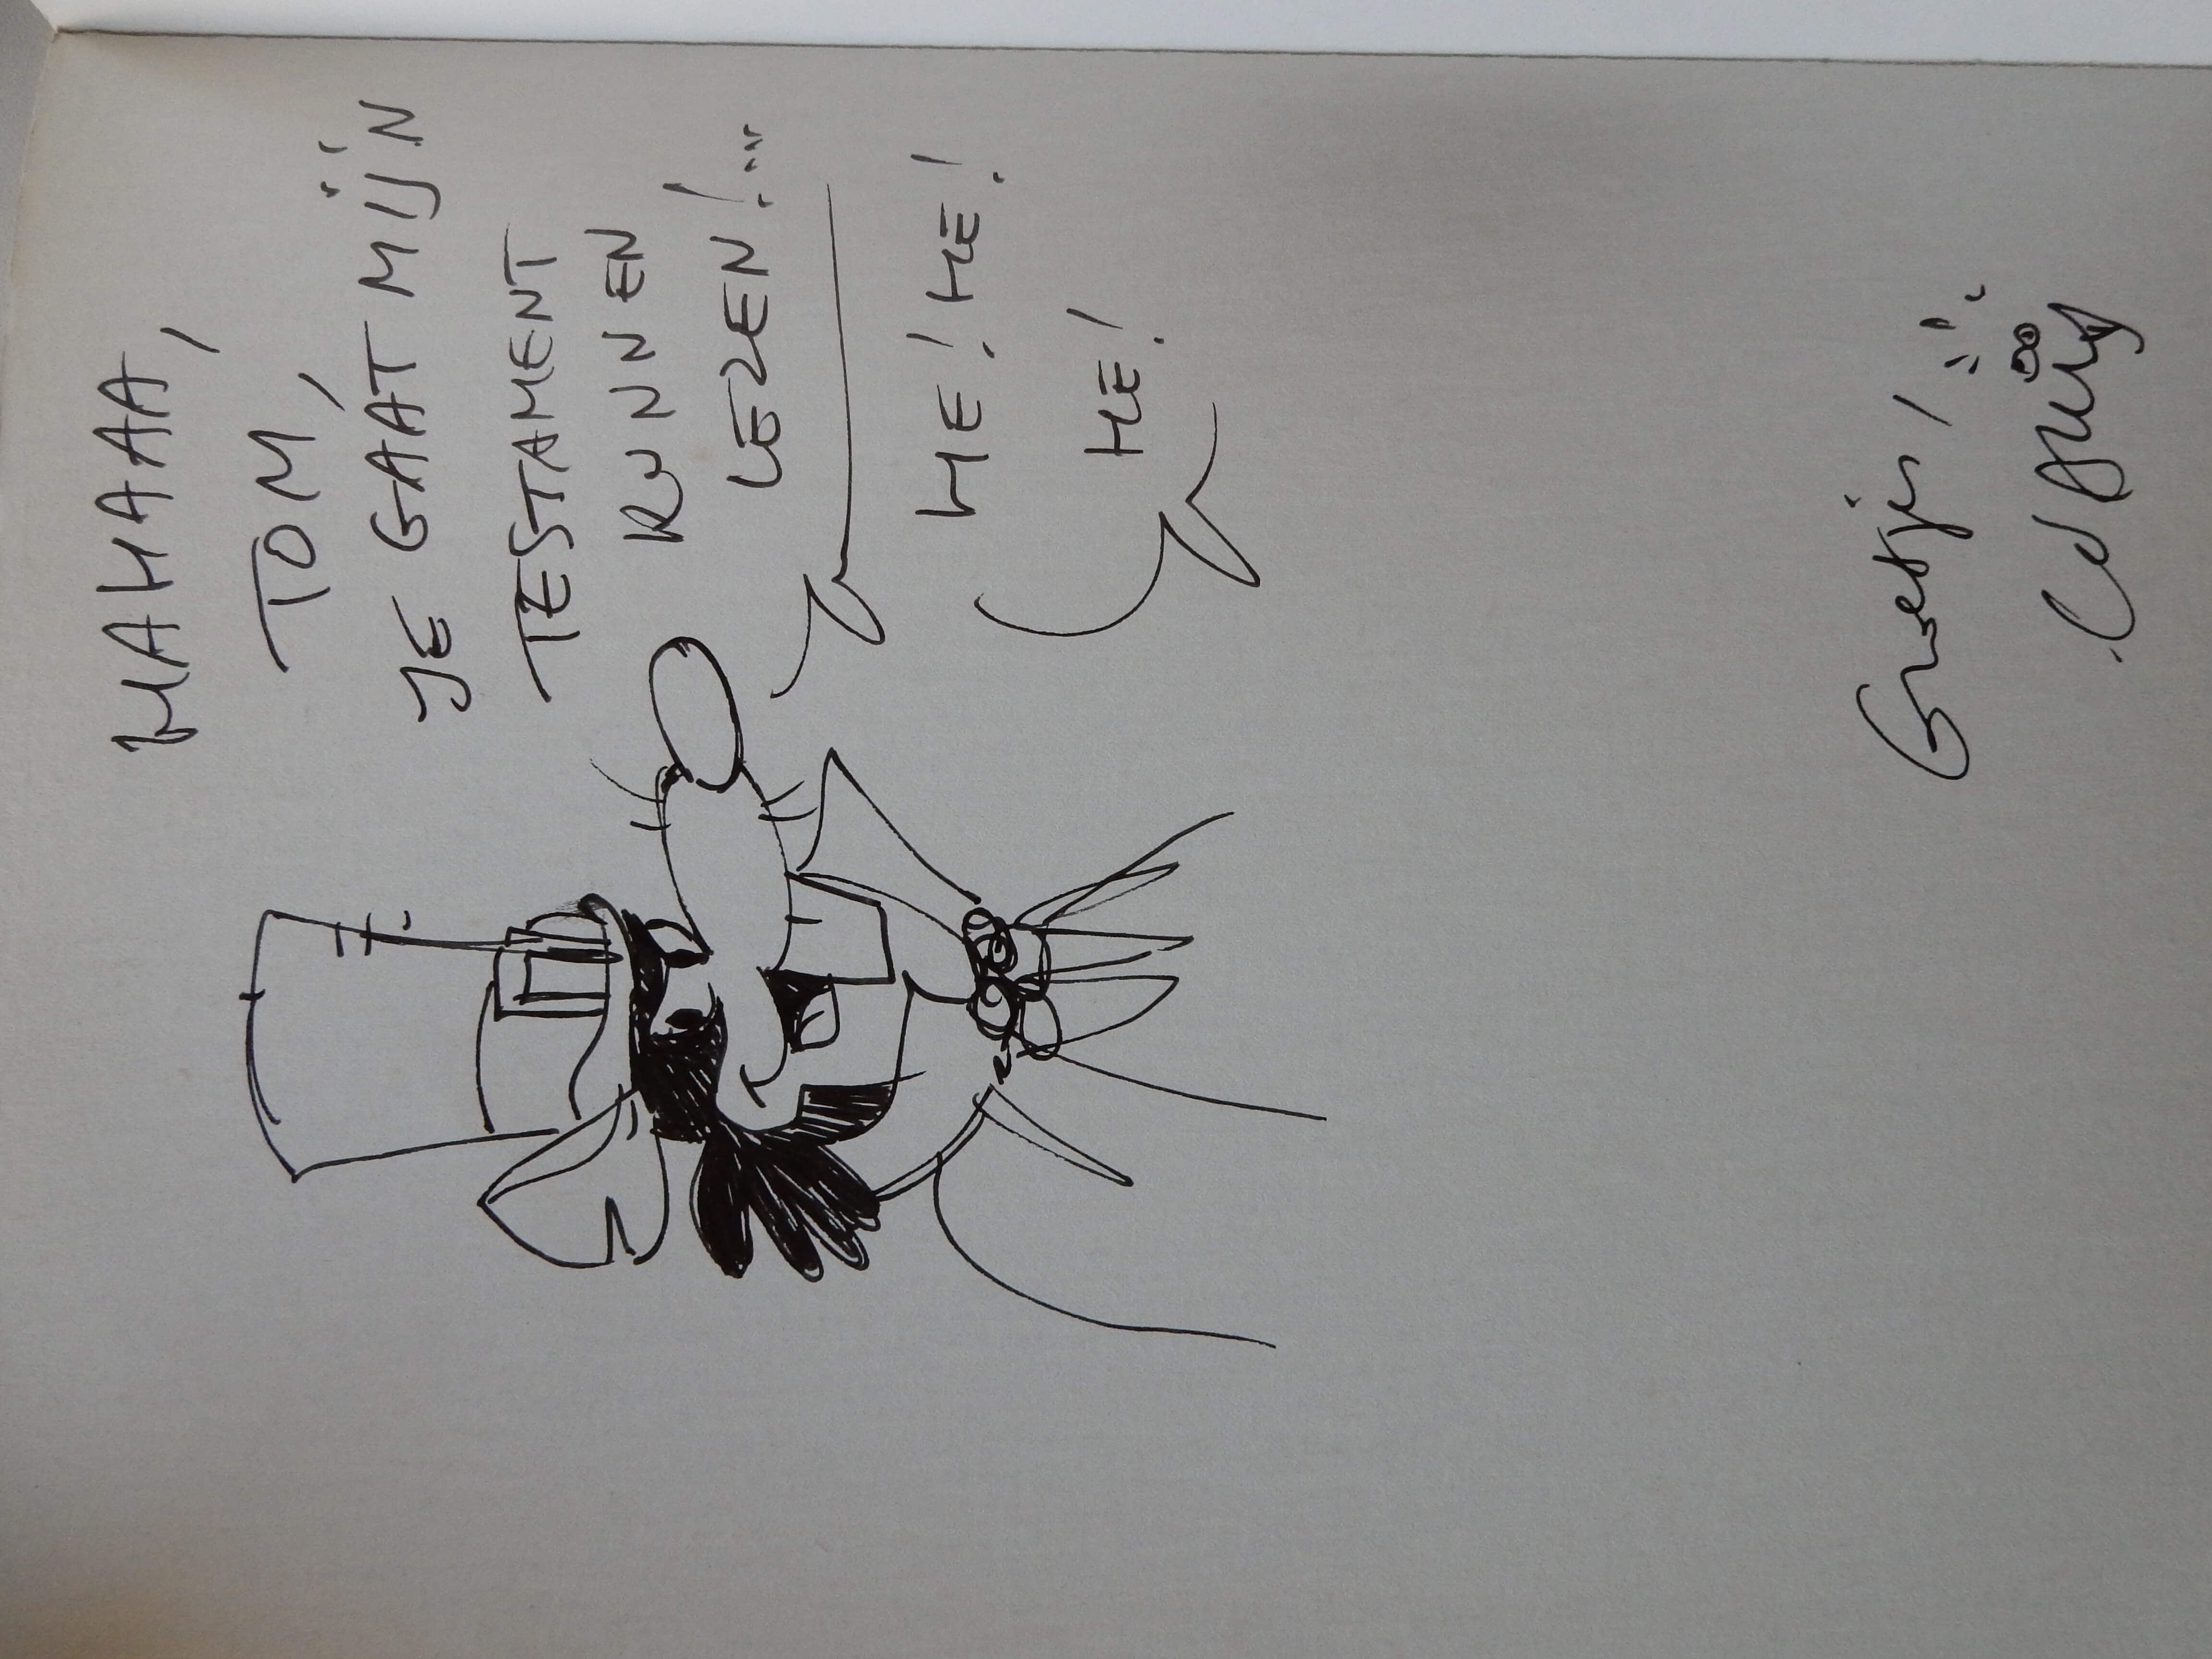 HAHAAA,
TOM,
JE GAAT MIJN
TESTAMENT
KUNNEN
LEZEN!...
HE! HE!
HE!
Groetjes,